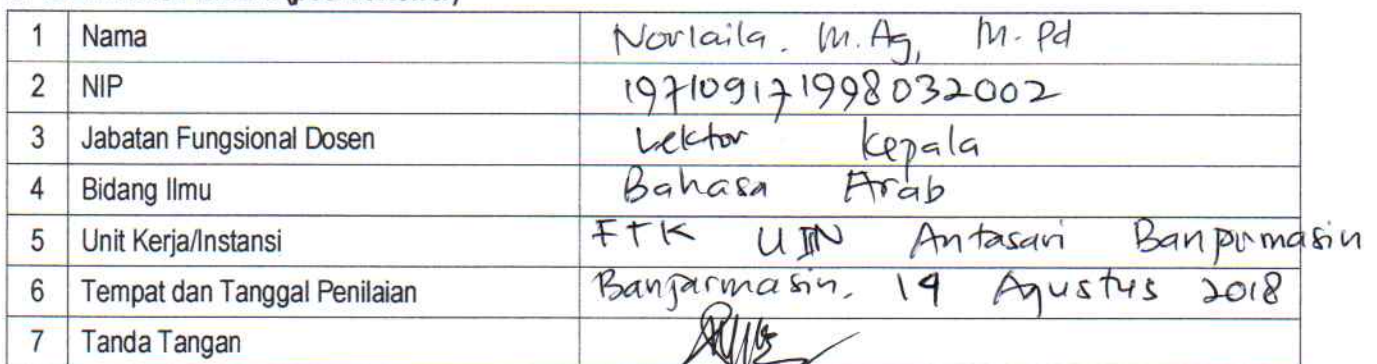 1 Nama Norlaila, M.Ag, M.Pd
2 NIP 197109171998032002
3 Jabatan Fungsional Dosen Lektor Kepala
4 Bidang Ilmu Bahasa Arab
5 Unit Kerja/Instansi FTK UIN Antasari Banjarmasin
6 Tempat dan Tanggal Penilaian Banjarmasin, 19 Agustus 2018
7 Tanda Tangan